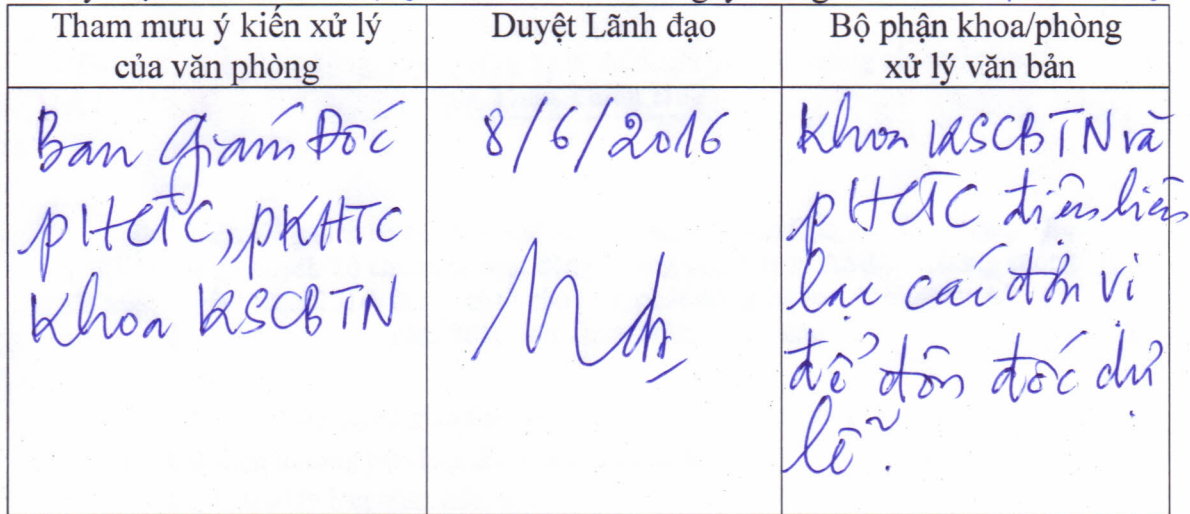 Tham mưu ý kiến xử lý
của văn phòng
Duyệt Lãnh đạo
Bộ phận khoa/phòng
xử lý văn bản
Ban Giám Đốc
pHCTC, pKHTC
Khoa KSCBTN
8/6/2016
Khoa KSCBTN và
pHCTC điện liên
lạc các đơn vị
để đôn đốc dự
lễ.